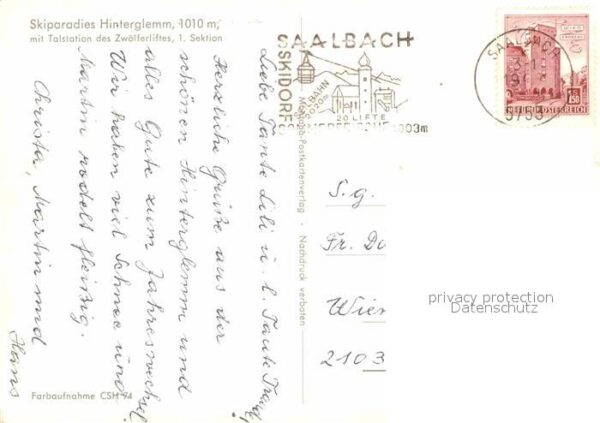 Skiparadies Hinterglemm, 1010 m,
mit Talstation des Zwölferliftes, 1. Sektion
Liebe Tante Lili u. l. Tante Traudl,
Herzliche Grüße aus der
schönen Hinterglemm und
alles Gute zum Jahreswechsel!
Wir haben viel Schnee und
Martin rodelt fleißig.
Christa, Martin und
Hans
Farbaufnahme CSH 94
Postkartenverlag · Nachdruck verboten
SAALBACH
SKIDORF
20 LIFTE
1003m
SAALBACH
REPUBLIK ÖSTERREICH
S.g.
Fr. Do
Wien
2103
privacy protection
Datenschutz